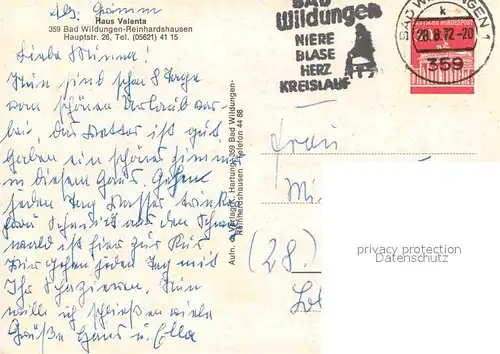 Abs. Grimm
Haus Valenta
359 Bad Wildungen-Reinhardshausen
Hauptstr. 26, Tel. (05621) 41 15
Liebe Minna!
Nun sind schon 8 Tage
vom schönen Urlaub vor-
bei. Das Wetter ist gut
haben ein schönes Zimmer
in diesem Haus. Gehen
jeden Tag Wasser trinken
Frau Schmidt aus den Schwarz-
wald ist hier zur Kur
Wir gehen jeden Tag mit
Ihr Spazieren. Nun
will ich schließen viele
Grüße Hans u. Ella
Aufn. u. Verlag K. Hartung, 359 Bad Wildungen-
Reinhardshausen Telefon 44 88
BAD
Wildungen
NIERE
BLASE
HERZ
KREISLAUF
BAD WILDUNGEN 1
k
28.8.72-20
359
DEUTSCHE BUNDESPOST
Frau
Mi
(28.)
privacy protection
Datenschutz